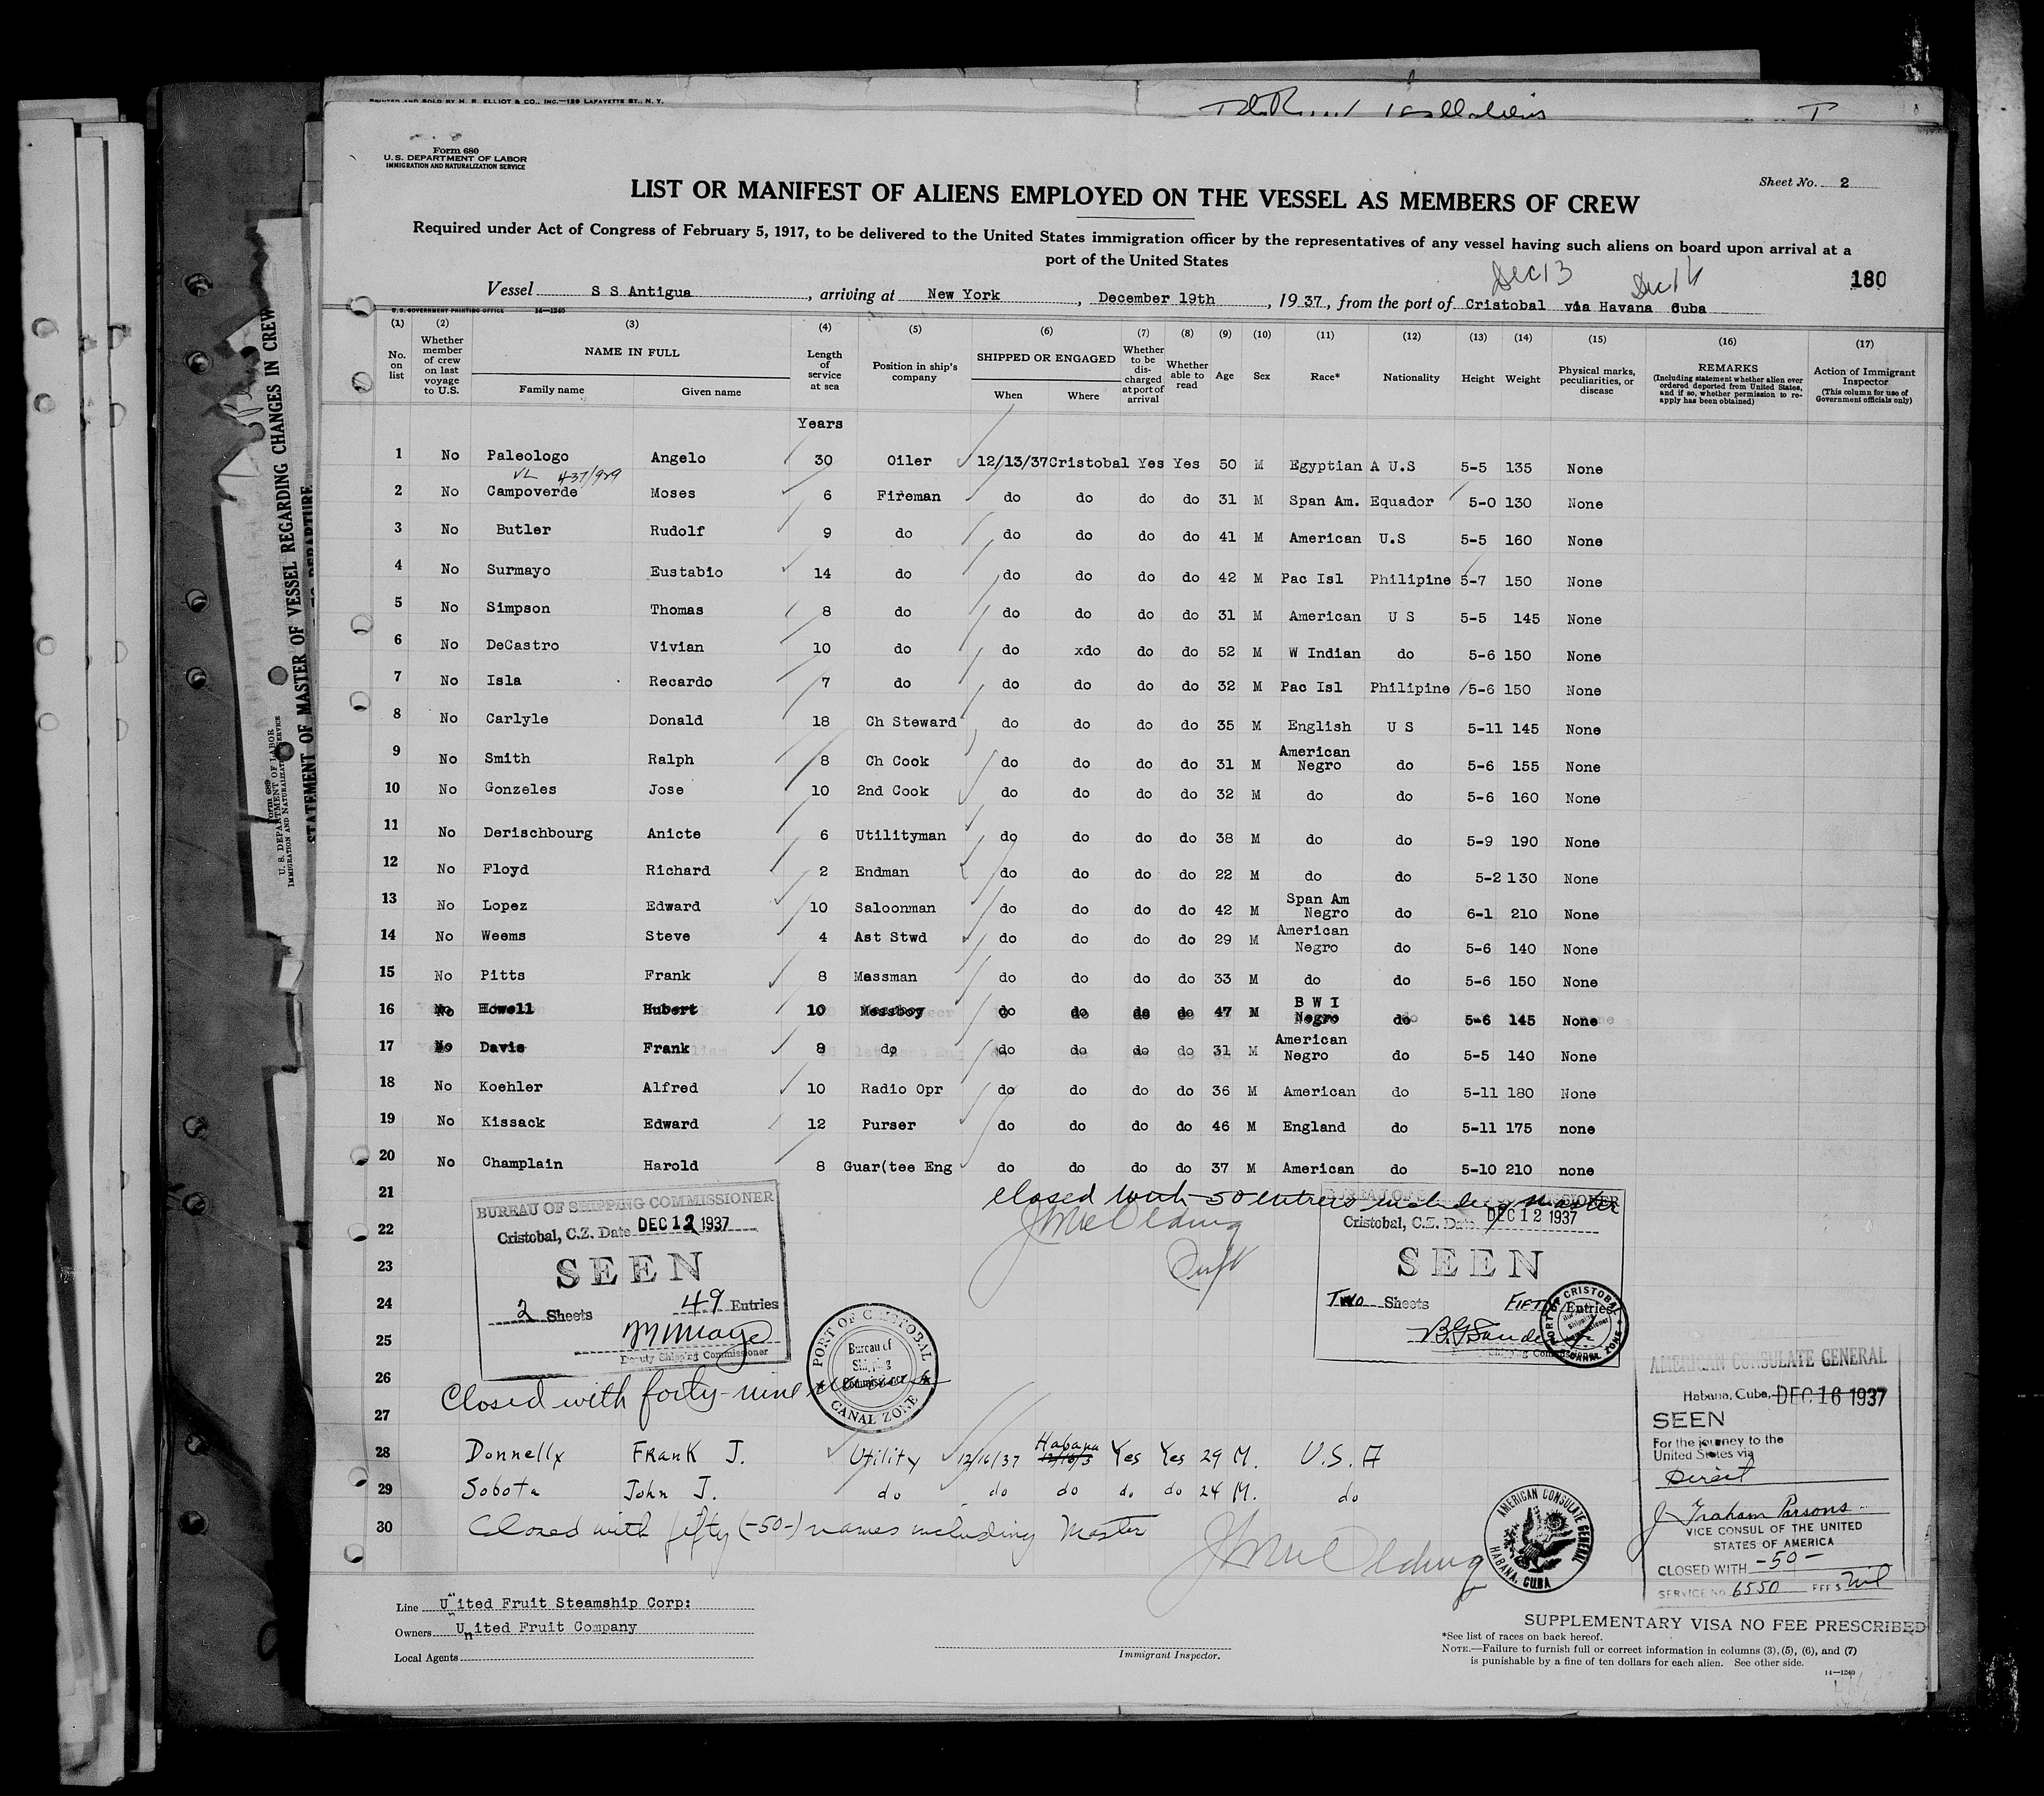 PRINTED AND SOLD BY H. R. ELLIOT & CO., INC.—129 LAFAYETTE ST., N. Y.
Form 680
U. S. DEPARTMENT OF LABOR
IMMIGRATION AND NATURALIZATION SERVICE
Sheet No. 2
LIST OR MANIFEST OF ALIENS EMPLOYED ON THE VESSEL AS MEMBERS OF CREW
Required under Act of Congress of February 5, 1917, to be delivered to the United States immigration officer by the representatives of any vessel having such aliens on board upon arrival at a
port of the United States
Dec 13 Dec 16
180
Vessel S S Antigua, arriving at New York, December 19th, 1937, from the port of Cristobal via Havana Cuba
U.S. GOVERNMENT PRINTING OFFICE 14—1240
(1) (2) (3) (4) (5) (6) (7) (8) (9) (10) (11) (12) (13) (14) (15) (16) (17)
No. on list
Whether member of crew on last voyage to U.S.
NAME IN FULL
Family name Given name
Length of service at sea
Position in ship's company
SHIPPED OR ENGAGED
When Where
Whether to be discharged at port of arrival
Whether able to read
Age Sex Race* Nationality Height Weight
Physical marks, peculiarities, or disease
REMARKS
(Including statement whether alien ever ordered deported from United States, and if so, whether permission to reapply has been obtained)
Action of Immigrant Inspector
(This column for use of Government officials only)
Years
1 No Paleologo Angelo 30 Oiler 12/13/37 Cristobal Yes Yes 50 M Egyptian A U.S 5-5 135 None
VL 437/929
2 No Campoverde Moses 6 Fireman do do do do 31 M Span Am. Equador 5-0 130 None
3 No Butler Rudolf 9 do do do do do 41 M American U.S 5-5 160 None
4 No Surmayo Eustabio 14 do do do do do 42 M Pac Isl Philipine 5-7 150 None
5 No Simpson Thomas 8 do do do do do 31 M American U S 5-5 145 None
6 No DeCastro Vivian 10 do do xdo do do 52 M W Indian do 5-6 150 None
7 No Isla Recardo 7 do do do do do 32 M Pac Isl Philipine 5-6 150 None
8 No Carlyle Donald 18 Ch Steward do do do do 35 M English U S 5-11 145 None
9 No Smith Ralph 8 Ch Cook do do do do 31 M American Negro do 5-6 155 None
10 No Gonzeles Jose 10 2nd Cook do do do do 32 M do do 5-6 160 None
11 No Derischbourg Anicte 6 Utilityman do do do do 38 M do do 5-9 190 None
12 No Floyd Richard 2 Endman do do do do 22 M do do 5-2 130 None
13 No Lopez Edward 10 Saloonman do do do do 42 M Span Am Negro do 6-1 210 None
14 No Weems Steve 4 Ast Stwd do do do do 29 M American Negro do 5-6 140 None
15 No Pitts Frank 8 Messman do do do do 33 M do do 5-6 150 None
16 No Howell Hubert 10 Messboy do do do do 47 M B W I Negro do 5-6 145 None
17 No Davis Frank 8 do do do do do 31 M American Negro do 5-5 140 None
18 No Koehler Alfred 10 Radio Opr do do do do 36 M American do 5-11 180 None
19 No Kissack Edward 12 Purser do do do do 46 M England do 5-11 175 none
20 No Champlain Harold 8 Guar(tee Eng do do do do 37 M American do 5-10 210 none
21
22
23
24
25
26
27
closed with -50 entries including Master
BUREAU OF SHIPPING COMMISSIONER
Cristobal, C.Z. Date DEC 12 1937
SEEN
2 Sheets 49 Entries
Deputy Shipping Commissioner
PORT OF CRISTOBAL
Bureau of Shipping Commissioner
CANAL ZONE
Cristobal, C.Z. Date DEC 12 1937
SEEN
Two Sheets Fifty Entries
Closed with forty-nine
28 Donnelly Frank J. Utility 12/16/37 Habana Yes Yes 29 M. U.S.A
29 Sobota John J. do do do do do 24 M. do
30 Closed with fifty (-50-) names including Master
AMERICAN CONSULATE GENERAL
Habana, Cuba, DEC 16 1937
SEEN
For the journey to the
United States via
Direct
J Graham Parsons
VICE CONSUL OF THE UNITED
STATES OF AMERICA
CLOSED WITH -50-
SERVICE No. 6550 FEE $ Nil
AMERICAN CONSULATE GENERAL
HABANA, CUBA
SUPPLEMENTARY VISA NO FEE PRESCRIBED
Line United Fruit Steamship Corp:
Owners United Fruit Company
Local Agents
Immigrant Inspector.
*See list of races on back hereof.
NOTE.—Failure to furnish full or correct information in columns (3), (5), (6), and (7)
is punishable by a fine of ten dollars for each alien. See other side.
14—1240
Form 689
U. S. DEPARTMENT OF LABOR
IMMIGRATION AND NATURALIZATION SERVICE
STATEMENT OF MASTER OF VESSEL REGARDING CHANGES IN CREW